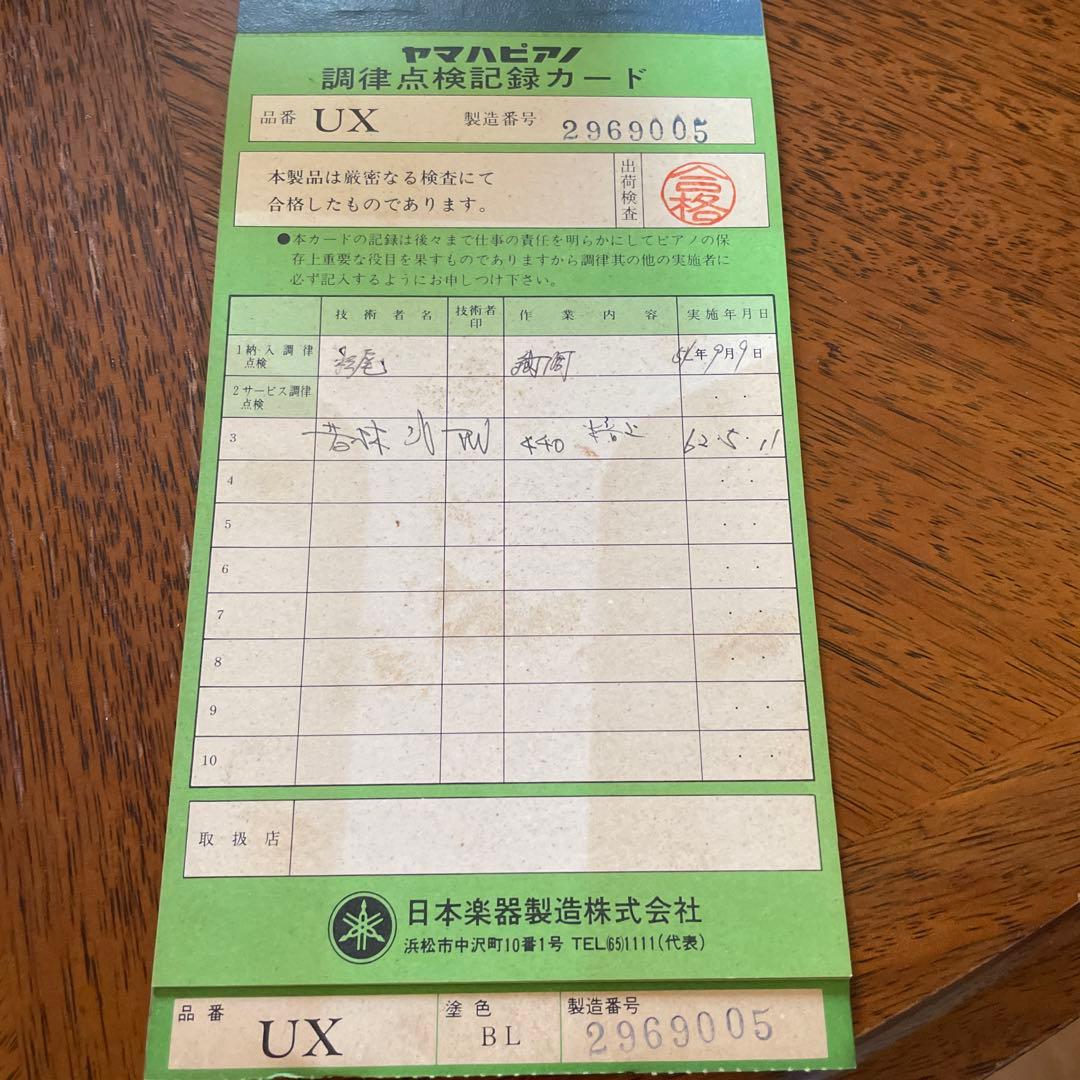 ヤマハピアノ
調律点検記録カード
品番 UX 製造番号 2969005
本製品は厳密なる検査にて
合格したものであります。
出荷検査
合格
●本カードの記録は後々まで仕事の責任を明らかにしてピアノの保
存上重要な役目を果すものでありますから調律其の他の実施者に
必ず記入するようにお申しつけ下さい。
技術者名 技術者印 作業内容 実施年月日
1 納入調律点検 松尾 年9月9日
2 サービス調律点検
3 440 62.5.11
4
5
6
7
8
9
10
取扱店
日本楽器製造株式会社
浜松市中沢町10番1号 TEL(65)1111(代表)
品番 UX 塗色 BL 製造番号 2969005